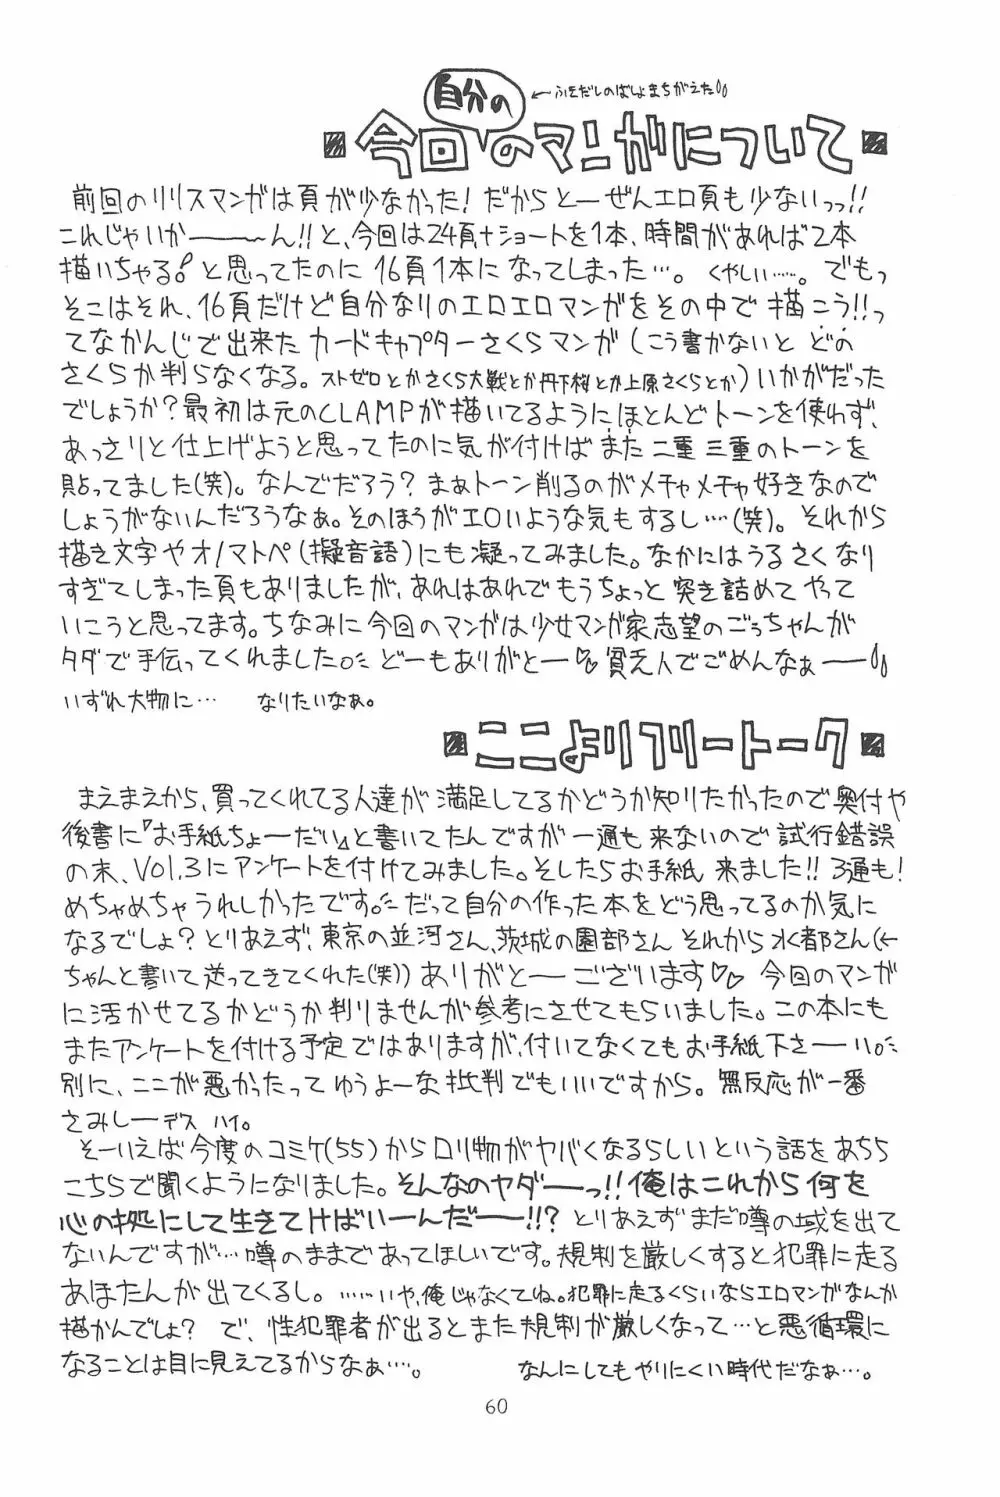 自分の ←ふきだしのばしょまちがえた
今回のマンガについて
前回のリリスマンガは頁が少なかった!だからとーぜんエロ頁も少ないっっ!!
これじゃいか───〜ん!!と、今回は24頁+ショートを1本、時間があれば2本
描いちゃる!と思ってたのに16頁1本になってしまった…。くやしい……。でもっ
そこはそれ、16頁だけど自分なりのエロエロマンガをその中で描こう!!っ
てなかんじで出来たカードキャプターさくらマンガ(こう書かないとどの
さくらか判らなくなる。ストゼロとかさくら大戦とか丹下桜とか上原さくらとか)いかがだった
でしょうか?最初は元のCLAMPが描いてるように、ほとんどトーンを使わず、
あっさりと仕上げようと思ってたのに気が付けばまた二重三重のトーンを
貼ってました(笑)。なんでだろう?まぁトーン削るのがメチャメチャ好きなので
しょうがないんだろうなぁ。そのほうがエロいような気もするし…(笑)。それから
描き文字やオノマトペ(擬音語)にも凝ってみました。なかにはうるさくなり
すぎてしまった頁もありましたが、あれはあれでもうちょっと突き詰めてやって
いこうと思ってます。ちなみに今回のマンガは少女マンガ家志望のごぅちゃんが
タダで手伝ってくれました。どーもありがとー♡貧乏人でごめんなぁー
いずれ大物に… なりたいなぁ。
ここよりフリートーク
まえまえから、買ってくれてる人達が満足してるかどうか知りたかったので奥付や
後書に『お手紙ちょーだい』と書いてたんですが一通も来ないので試行錯誤
の末、Vol.3にアンケートを付けてみました。そしたらお手紙来ました!!3通も!
めちゃめちゃうれしかったです。だって自分の作った本をどう思ってるのか気に
なるでしょ?とりあえず、東京の並河さん、茨城の園部さんそれから水都さん(←
ちゃんと書いて送ってきてくれた(笑))ありがとーございます♡♡今回のマンガ
に活かせてるかどうか判りませんが参考にさせてもらいました。この本にも
またアンケートを付ける予定ではありますが、付いてなくてもお手紙下さーい。
別に、ここが悪かったってゆうよーな批判でもいいですから。無反応が一番
さみしーデス ハイ。
そーいえば今度のコミケ(55)からロリ物がヤバくなるらしいという話をあちら
こちらで聞くようになりました。そんなのヤダーっ!!俺はこれから何を
心の拠にして生きてけばいーんだー!!?とりあえずまだ噂の域を出て
ないんですが…噂のままであってほしいです。規制を厳しくすると犯罪に走る
あほたんが出てくるし。……いや、俺じゃなくてね。犯罪に走るくらいならエロマンガなんか
描かんでしょ?で、性犯罪者が出るとまた規制が厳しくなって…と悪循環に
なることは目に見えてるからなぁ…。 なんにしてもやりにくい時代だなぁ…。
60